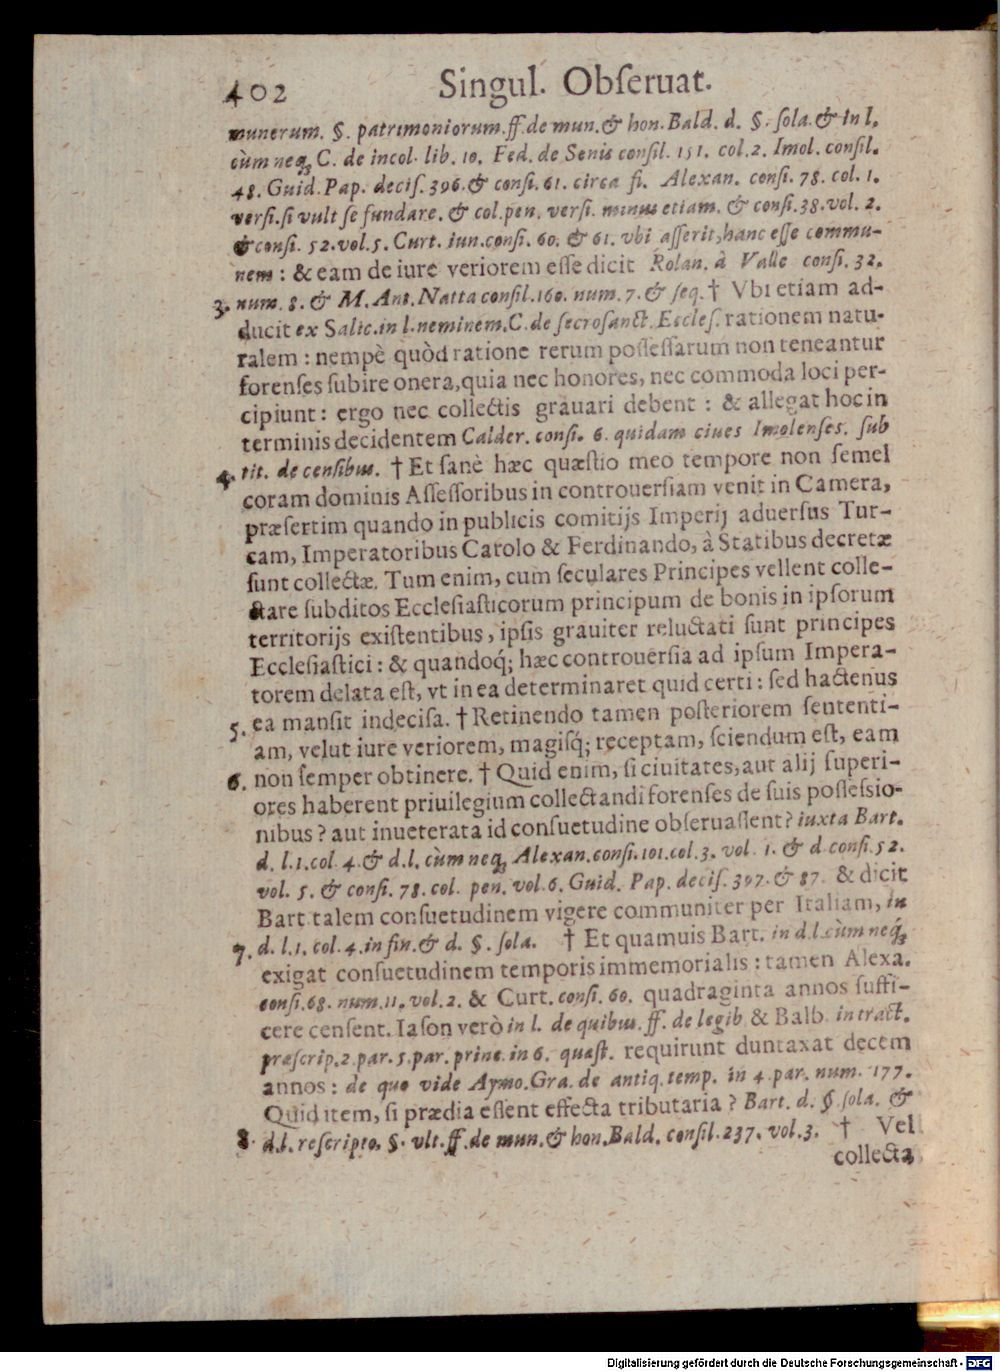 402 Singul. Obſeruat.
munerum. §. patrimoniorum. ff. de mun. & hon. Bald. d. §. ſola. & in l.
cùm neq; C. de incol. lib. 10. Fed. de Senis conſil. 151. col. 2. Imol. conſil.
48. Guid. Pap. deciſ. 396. & conſi. 61. circa fi. Alexan. conſi. 78. col. 1.
verſi. ſi vult ſe fundare. & col. pen. verſi. minus etiam. & conſi. 38. vol. 2.
& conſi. 52. vol. 5. Curt. iun. conſi. 60. & 61. vbi aſſerit, hanc eſſe commu-
nem : & eam de iure veriorem eſſe dicit Rolan. à Valle conſi. 32.
3. num. 8. & M. Ant. Natta conſil. 160. num. 7. & ſeq. † Vbi etiam ad-
ducit ex Salic. in l. neminem. C. de ſacroſanct. Eccleſ. rationem natu-
ralem : nempè quòd ratione rerum poſſeſſarum non teneantur
forenſes ſubire onera, quia nec honores, nec commoda loci per-
cipiunt : ergo nec collectis grauari debent : & allegat hoc in
terminis decidentem Calder. conſi. 6. quidam ciues Imolenſes. ſub
4. tit. de cenſibus. † Et ſanè hæc quæſtio meo tempore non ſemel
coram dominis Aſſeſſoribus in controuerſiam venit in Camera,
præſertim quando in publicis comitijs Imperij aduerſus Tur-
cam, Imperatoribus Carolo & Ferdinando, à Statibus decretæ
ſunt collectæ. Tum enim, cum ſeculares Principes vellent colle-
ctare ſubditos Eccleſiaſticorum principum de bonis in ipſorum
territorijs exiſtentibus, ipſis grauiter reluctati ſunt principes
Eccleſiaſtici : & quandoq́; hæc controuerſia ad ipſum Impera-
torem delata eſt, vt in ea determinaret quid certi : ſed hactenus
5. ea manſit indeciſa. † Retinendo tamen poſteriorem ſententi-
am, velut iure veriorem, magiſq́; receptam, ſciendum eſt, eam
6. non ſemper obtinere. † Quid enim, ſi ciuitates, aut alij ſuperi-
ores haberent priuilegium collectandi forenſes de ſuis poſſeſſio-
nibus ? aut inueterata id conſuetudine obſeruaſſent ? iuxta Bart.
d. l. 1. col. 4. & d. l. cùm neq; Alexan. conſi. 101. col. 3. vol. 1. & d. conſi. 52.
vol. 5. & conſi. 78. col. pen. vol. 6. Guid. Pap. deciſ. 397. & 87. & dicit
Bart. talem conſuetudinem vigere communiter per Italiam, in
7. d. l. 1. col. 4. in fin. & d. §. ſola. † Et quamuis Bart. in d. l. cùm neq́;
exigat conſuetudinem temporis immemorialis : tamen Alexa.
conſi. 68. num. 11. vol. 2. & Curt. conſi. 60. quadraginta annos ſuffi-
cere cenſent. Iaſon verò in l. de quibus. ff. de legib. & Balb. in tract.
præſcrip. 2. par. 5. par. princ. in 6. quæſt. requirunt duntaxat decem
annos : de quo vide Aymo. Gra. de antiq. temp. in 4. par. num. 177.
Quid item, ſi prædia eſſent effecta tributaria ? Bart. d. §. ſola. &
8. d. l. reſcripto. §. vlt. ff. de mun. & hon. Bald. conſil. 237. vol. 3. † Vel
collecta
Digitalisierung gefördert durch die Deutsche Forschungsgemeinschaft - DFG